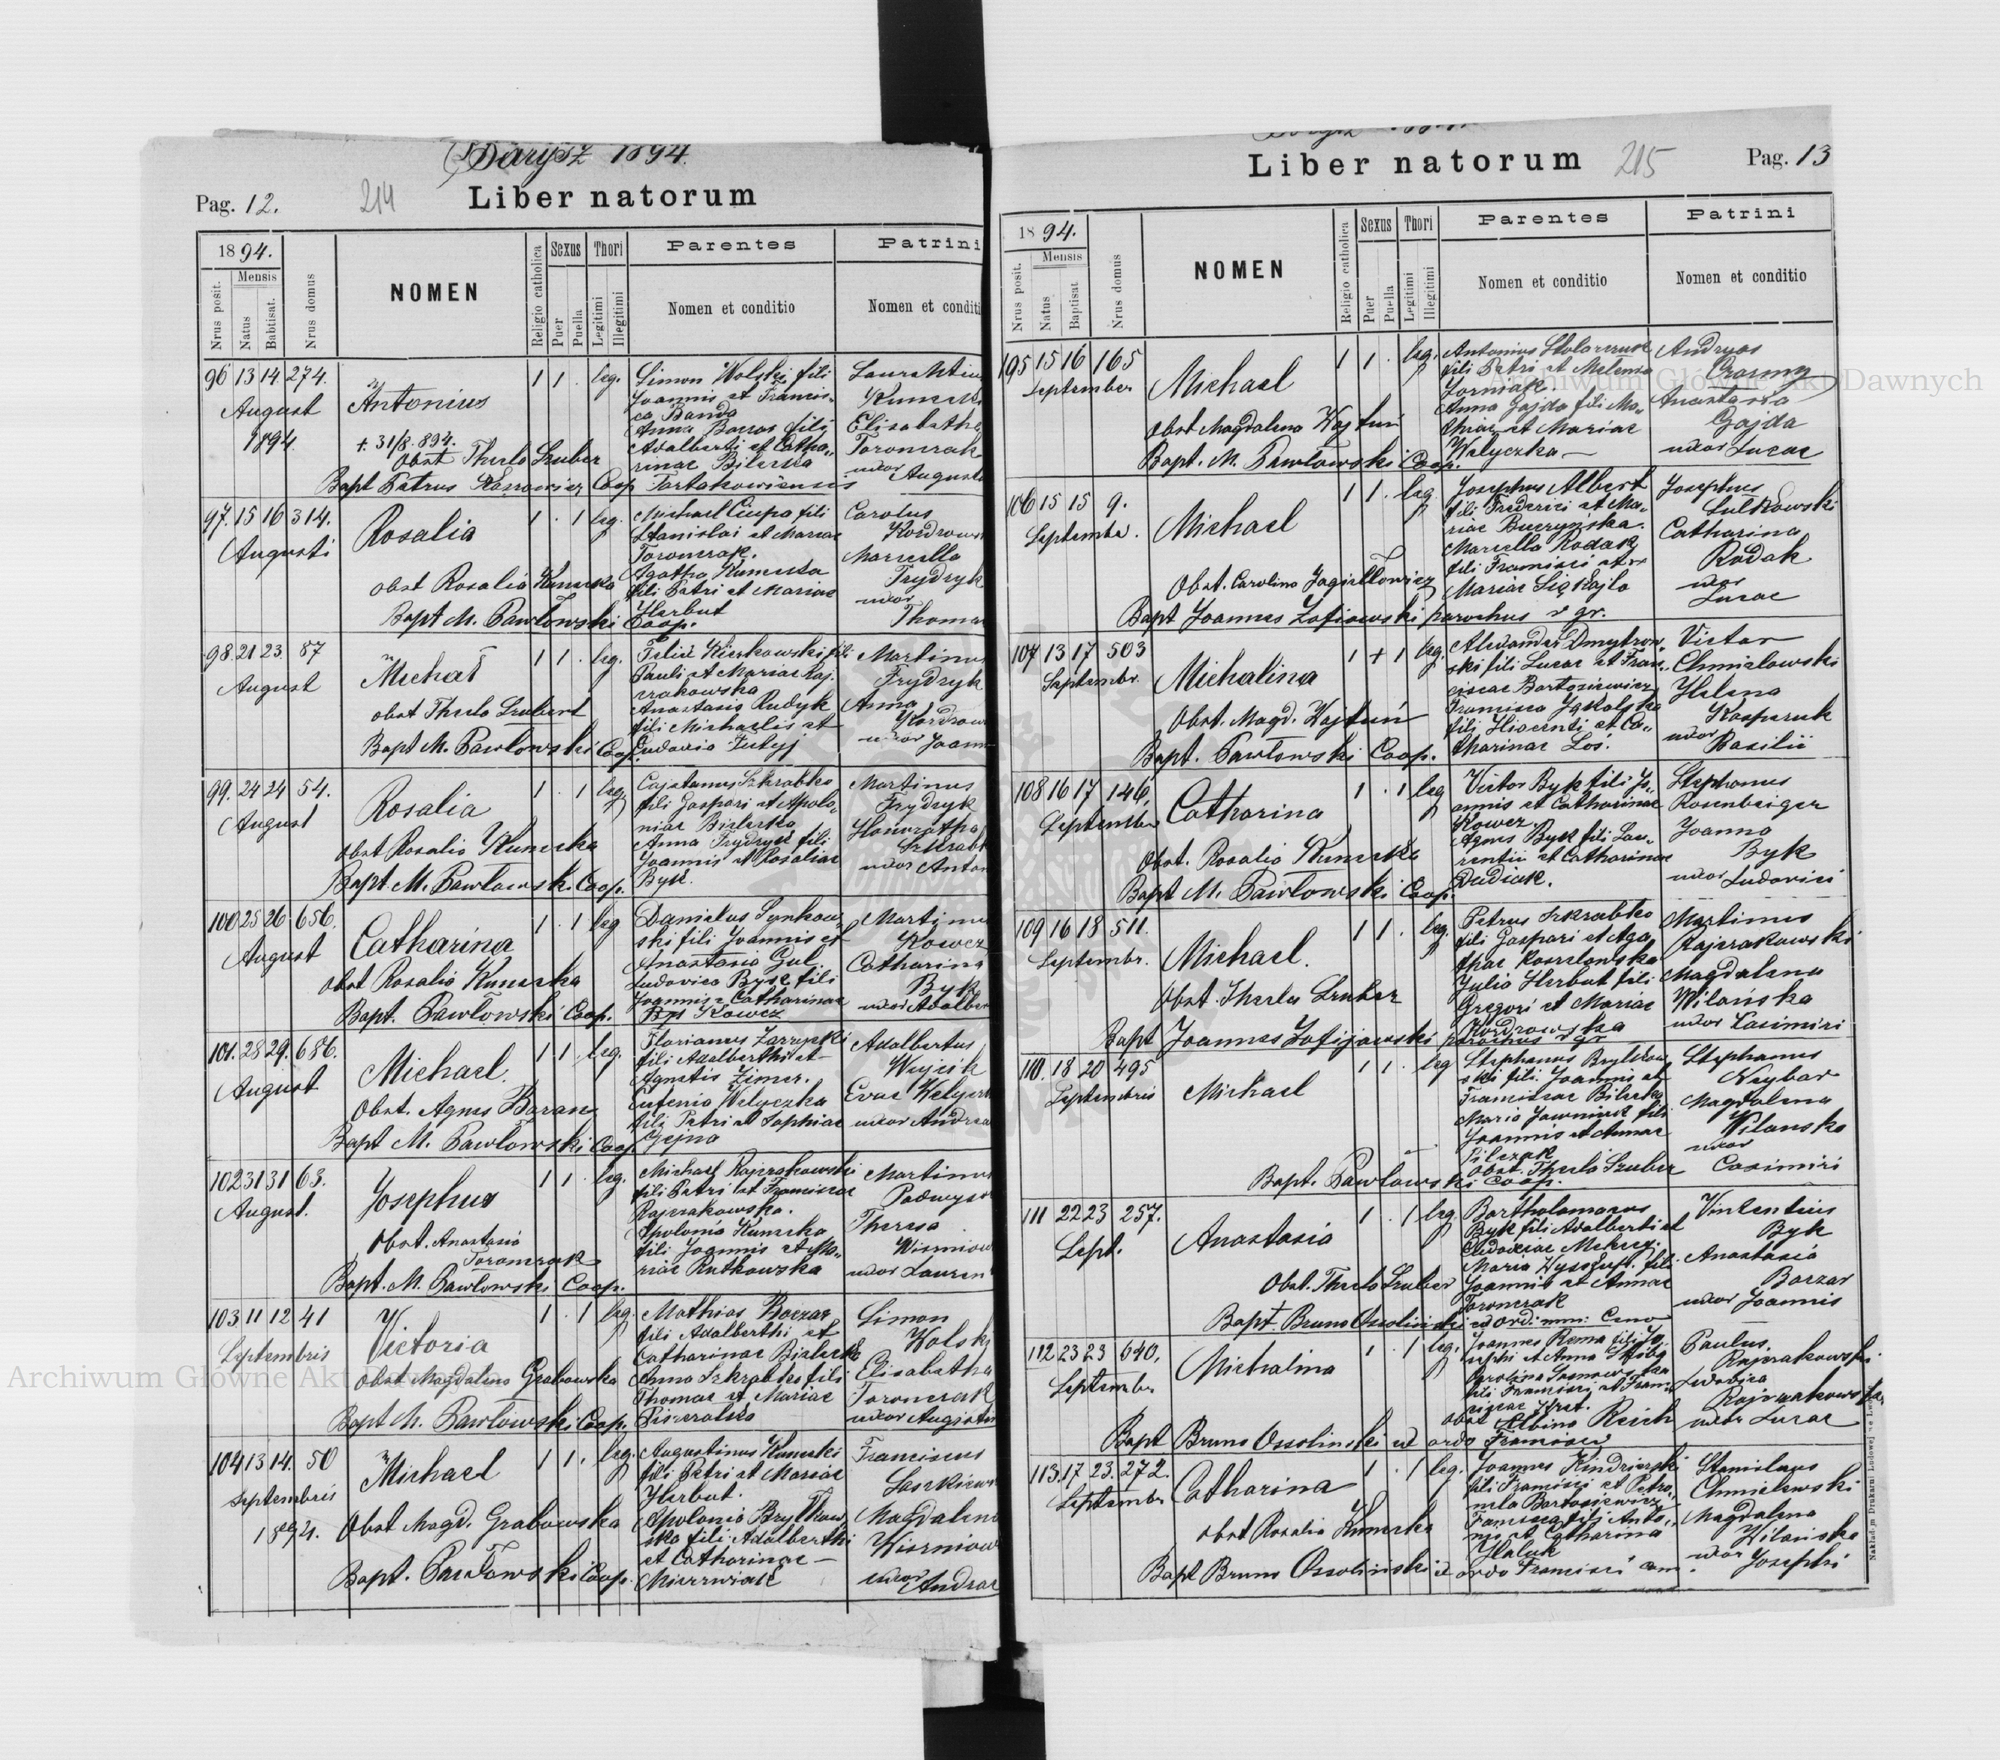 Darysz 1894.
Pag. 12.
214
Liber natorum
1894.
Mensis
Nrus posit.
Natus
Babtisat.
Nrus domus
NOMEN
Religio catholica
Sexus
Puer
Puella
Thori
Legitimi
Illegitimi
Parentes
Nomen et conditio
Patrini
Nomen et conditi
96 13 14 274.
August
1894
Antonius
+ 31/8 894.
Obst Thecla Szuber
Bapt Petrus Coop Tartakowiensis
1 1 . leg.
Simon Wolski fili
Joannis et Francis-
ca Banda
Anna fili
Adalberti et Catha-
rinae Bilecka
Elisabetha
Toronczak
uxor
August
97. 15 16 314.
Augusti
Rosalia
obst Rosalia Kunecka
Bapt M. Pawłowski Coop.
1 . 1 leg.
Michael Ciupa fili
Stanislai et Mariae
Toronczak.
Agatha Kunecka
fili Petri et Mariae
Herbut
Carolus
Marcella
Frydryk
uxor
Thoma
98. 21 23. 87
August
Michał
obst Thecla Szubert
Bapt M. Pawłowski Coop.
1 1 . leg.
Pauli et Mariae Raj-
czakowska
Anastasia Rudyk
fili Michaelis et
Martinus
Frydryk
Anna
uxor Joann
99. 24 24 54.
August
Rosalia
obst Rosalia Kunecka
Bapt. M. Pawłowski Coop.
1 . 1 leg.
Cajetanus Szkrabko
fili Gaspari et Apolo-
niae Bielecka
Anna Frydryk fili
Joannis et Rosaliae
Byk.
Martinus
Frydryk
Szkrab
uxor Anton
100 25 26 656.
August
Catharina
obst Rosalia Kunecka
Bapt. Pawłowski Coop.
1 . 1 leg
Danielus Synkow-
ski fili Joannis et
Anastasia Gul
Ludovica Byk fili
Joannis et Catharinae
Kowcz
Martinu
Kowcz
Catharina
Byk
uxor Adalber
101. 28 29. 686.
August
Michael.
Obst. Agnes Baran
Bapt M. Pawłowski Coop
1 1 . leg.
Florianus Zarzycki
fili Adalberthi et
Agnetis Zimer.
Eufenia Welyczka
fili Petri et Sophiae
Adalbertus
Wujcik
Evae
uxor Andrea
102 31 31 63.
August.
Josephus
Obst. Anastasia
Toronczak
Bapt. M. Pawłowski Coop.
1 1 . leg.
Michael Rajczakowski
fili Petri et Franciscae
Rajczakowska.
Apolonia Kunecka
fili Joannis et Ma-
riae Rutkowska
Martinu
Theresa
Wisniow
uxor Lauren
103 11 12 41
Septembris
Victoria
obst Magdalena Grabowska
Bapt M. Pawłowski Coop.
1 . 1 leg.
Mathias Boczar
fili Adalberthi et
Catharinae Bielecka
Anna Szkrabko fili
Thomae et Mariae
Simon
Wolsk
Elisabetha
Toronczak
uxor Augustin
104 13 14. 50
Septembris
1894.
Michael
Obst Magd. Grabowska
Bapt. Pawłowski Coop.
1 1 . leg.
Augustinus Kunecki
fili Petri et Mariae
Herbut.
Apolonia Bryłkow-
ska fili Adalberthi
et Catharinae —
Franciscus
Magdalena
Wisniow
uxor Andreae
Liber natorum
215
Pag. 13
1894.
Mensis
Nrus posit.
Natus
Baptisat
Nrus domus
NOMEN
Religio catholica
Sexus
Puer
Puella
Thori
Legitimi
Illegitimi
Parentes
Nomen et conditio
Patrini
Nomen et conditio
195 15 16 165
September
Michael
Obst Magdalena Kajtun
Bapt. M. Pawłowski Coop.
1 1 . leg.
Antonius Stolarczuk
fili Petri et Melenia
Anna Gajda fili Ma-
thiae et Mariae
Welyczka —
Andreas
Czorny
Anastasia
Gajda
uxor Lucae
106 15 15 9.
Septembe.
Michael
Obst. Carolina Jagiełłowicz
Bapt Joannes Zofijowski parochus r. gr.
1 1 . leg.
Josephus Albert
fili Frederici et Ma-
riae Buczynska.
Marcella Rodak
fili Francisci et
Mariae
Josephus
Sulkowski
Catharina
Rodak
uxor
Lucae
107 13 17 503
Septembr.
Michalina
Obst. Magd. Kajtun
Bapt. Pawłowski Coop.
1 + 1 leg.
Alexander Dmytrow-
ski fili Lucae et Fran-
ciscae Bartosiewicz
fili Hiacenti et Ca-
tharinae Los.
Victor
Chmielowski
Helena
Kasparuk
uxor
Basilii
108 16 17 146.
September
Catharina
Obst. Rosalia Kunecka
Bapt M. Pawłowski Coop.
1 . 1 leg
Victor Byk fili Jo-
annis et Catharinae
Kowcz.
Agnes Byk fili Lau-
rentii et Catharinae
Dudiak.
Stephanus
Rosenberger
Joanna
Byk
uxor
Ludovici
109 16 18 511.
Septembr.
Michael.
Obst. Thecla Szuber
Bapt Joannes Zofijowski parochus r gr
1 1 . leg.
Petrus Szkrabko
fili Gaspari et Aga-
thae Koszelowska
Julia Herbut fili
Gregori et Mariae
Martinus
Rajczakowski
Magdalena
Wilańska
uxor Casimiri
110. 18 20 495
Septembris
Michael
Bapt. Pawłowski Coop.
1 1 . leg
Stephanus Bryłkow-
ski fili. Joannis et
Franciscae Bilecka
Maria Jawniuk fili
Joannis et Annae
Filczak
Obst. Thecla Szuber
Stephanus
Neybar
Magdalena
Wilanska
uxor
Casimiri
111 22 23 257.
Sept.
Anastasia
Obst. Thecla Szuber
Bapt Bruno Ossolinski
1 . 1 leg
Bartholomaeus
Byk fili Adalberti et
Joannis et Annae
Toronczak
Vincentius
Byk
Anastasia
Boczar
uxor Joannis
112 23 23 640.
Septembr
Michalina
Bapt Bruno Ossolinski ex ordo Francisci
1 . 1 leg.
Joannes Rema fili Jo-
sephi et Anna
Carolina Sosnowska
fili Francisci et Fran-
ciscae
obst Albina Reich
Paulus
Rajczakowski
Ludovica
Rajczakowska
uxor Lucae
113. 17 23. 272.
Septembr
Catharina
obst Rosalia Kunecka
Bapt Bruno Ossoliński ex ordo Francisci
1 . 1 leg.
Joannes Kindzierski
fili Francisci et Petro-
nela Bartosiewicz
Francisca fili Anto-
nii et Catharina
Haluk
Stanislaus
Chmielewski
Magdalena
Wilańska
uxor Josephi
Archiwum Główne Akt Dawnych
Archiwum Główne Akt Dawnych